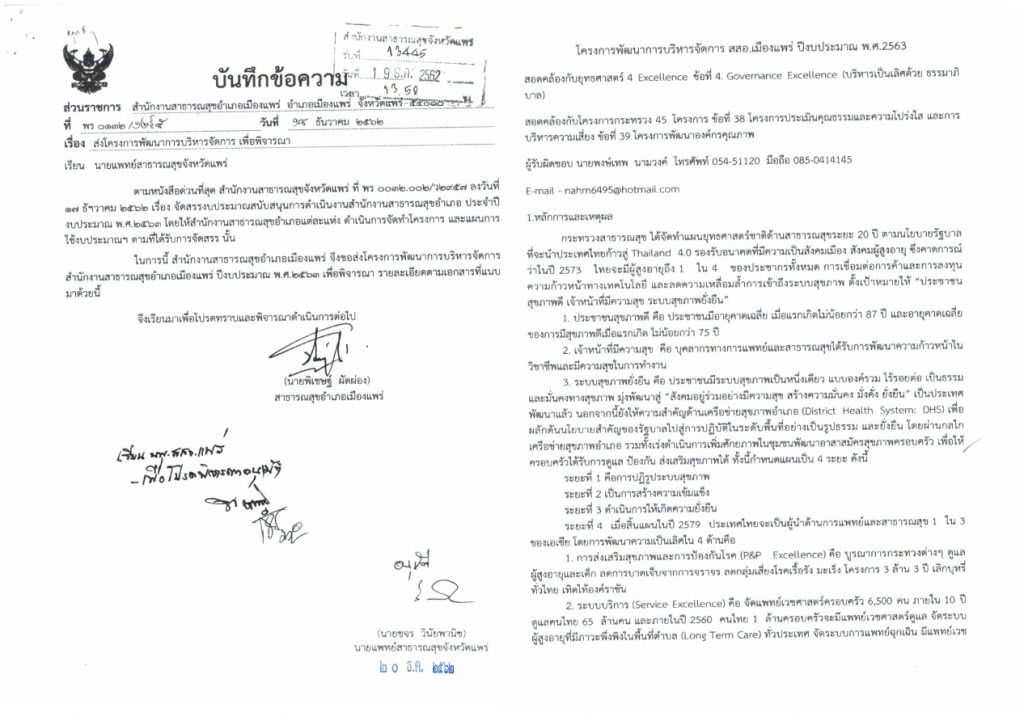 สำนักงานสาธารณสุขจังหวัดแพร่
รับที่ 13445
วันที่ 19 ธ.ค. 2562
เวลา 13.58
บันทึกข้อความ
ส่วนราชการ สำนักงานสาธารณสุขอำเภอเมืองแพร่ อำเภอเมืองแพร่ จังหวัดแพร่ ๕๔๐๐๐
ที่ พร ๐๑๓๒/ วันที่ ๑๙ ธันวาคม ๒๕๖๒
เรื่อง ส่งโครงการพัฒนาการบริหารจัดการ เพื่อพิจารณา
เรียน นายแพทย์สาธารณสุขจังหวัดแพร่
ตามหนังสือด่วนที่สุด สำนักงานสาธารณสุขจังหวัดแพร่ ที่ พร ๐๐๓๒.๐๐๒/ว๒๙๕๗ ลงวันที่
๑๗ ธันวาคม ๒๕๖๒ เรื่อง จัดสรรงบประมาณสนับสนุนการดำเนินงานสำนักงานสาธารณสุขอำเภอ ประจำปี
งบประมาณ พ.ศ.๒๕๖๓ โดยให้สำนักงานสาธารณสุขอำเภอแต่ละแห่ง ดำเนินการจัดทำโครงการ และแผนการ
ใช้งบประมาณฯ ตามที่ได้รับการจัดสรร นั้น
ในการนี้ สำนักงานสาธารณสุขอำเภอเมืองแพร่ จึงขอส่งโครงการพัฒนาการบริหารจัดการ
สำนักงานสาธารณสุขอำเภอเมืองแพร่ ปีงบประมาณ พ.ศ.๒๕๖๓ เพื่อพิจารณา รายละเอียดตามเอกสารที่แนบ
มาด้วยนี้
จึงเรียนมาเพื่อโปรดทราบและพิจารณาดำเนินการต่อไป
(นายพิเชษฐ์ ผัดผ่อง)
สาธารณสุขอำเภอเมืองแพร่
เรียน นพ.สสจ.แพร่
- เพื่อโปรดพิจารณาอนุมัติ
อนุมัติ
(นายขจร วินัยพานิช)
นายแพทย์สาธารณสุขจังหวัดแพร่
๒๐ ธ.ค. ๒๕๖๒
โครงการพัฒนาการบริหารจัดการ สสอ.เมืองแพร่ ปีงบประมาณ พ.ศ.2563
สอดคล้องกับยุทธศาสตร์ 4 Excellence ข้อที่ 4. Governance Excellence (บริหารเป็นเลิศด้วย ธรรมาภิ
บาล)
สอดคล้องกับโครงการกระทรวง 45 โครงการ ข้อที่ 38 โครงการประเมินคุณธรรมและความโปร่งใส และการ
บริหารความเสี่ยง ข้อที่ 39 โครงการพัฒนาองค์กรคุณภาพ
ผู้รับผิดชอบ นายพงษ์เทพ นามวงค์ โทรศัพท์ 054-51120 มือถือ 085-0414145
E-mail - nahm6495@hotmail.com
1.หลักการและเหตุผล
กระทรวงสาธารณสุข ได้จัดทำแผนยุทธศาสตร์ชาติด้านสาธารณสุขระยะ 20 ปี ตามนโยบายรัฐบาล
ที่จะนำประเทศไทยก้าวสู่ Thailand 4.0 รองรับอนาคตที่มีความเป็นสังคมเมือง สังคมผู้สูงอายุ ซึ่งคาดการณ์
ว่าในปี 2573 ไทยจะมีผู้สูงอายุถึง 1 ใน 4 ของประชากรทั้งหมด การเชื่อมต่อการค้าและการลงทุน
ความก้าวหน้าทางเทคโนโลยี และลดความเหลื่อมล้ำการเข้าถึงระบบสุขภาพ ตั้งเป้าหมายให้ “ประชาชน
สุขภาพดี เจ้าหน้าที่มีความสุข ระบบสุขภาพยั่งยืน”
1. ประชาชนสุขภาพดี คือ ประชาชนมีอายุคาดเฉลี่ย เมื่อแรกเกิดไม่น้อยกว่า 87 ปี และอายุคาดเฉลี่ย
ของการมีสุขภาพดีเมื่อแรกเกิด ไม่น้อยกว่า 75 ปี
2. เจ้าหน้าที่มีความสุข คือ บุคลากรทางการแพทย์และสาธารณสุขได้รับการพัฒนาความก้าวหน้าใน
วิชาชีพและมีความสุขในการทำงาน
3. ระบบสุขภาพยั่งยืน คือ ประชาชนมีระบบสุขภาพเป็นหนึ่งเดียว แบบองค์รวม ไร้รอยต่อ เป็นธรรม
และมั่นคงทางสุขภาพ มุ่งพัฒนาสู่ “สังคมอยู่ร่วมอย่างมีความสุข สร้างความมั่นคง มั่งคั่ง ยั่งยืน” เป็นประเทศ
พัฒนาแล้ว นอกจากนี้ยังให้ความสำคัญด้านเครือข่ายสุขภาพอำเภอ (District Health System: DHS) เพื่อ
ผลักดันนโยบายสำคัญของรัฐบาลไปสู่การปฏิบัติในระดับพื้นที่อย่างเป็นรูปธรรม และยั่งยืน โดยผ่านกลไก
เครือข่ายสุขภาพอำเภอ รวมทั้งเร่งดำเนินการเพิ่มศักยภาพในชุมชนพัฒนาอาสาสมัครสุขภาพครอบครัว เพื่อให้
ครอบครัวได้รับการดูแล ป้องกัน ส่งเสริมสุขภาพได้ ทั้งนี้กำหนดแผนเป็น 4 ระยะ ดังนี้
ระยะที่ 1 คือการปฏิรูประบบสุขภาพ
ระยะที่ 2 เป็นการสร้างความเข้มแข็ง
ระยะที่ 3 ดำเนินการให้เกิดความยั่งยืน
ระยะที่ 4 เมื่อสิ้นแผนในปี 2579 ประเทศไทยจะเป็นผู้นำด้านการแพทย์และสาธารณสุข 1 ใน 3
ของเอเชีย โดยการพัฒนาความเป็นเลิศใน 4 ด้านคือ
1. การส่งเสริมสุขภาพและการป้องกันโรค (P&P Excellence) คือ บูรณาการกระทวงต่างๆ ดูแล
ผู้สูงอายุและเด็ก ลดการบาดเจ็บจากการจราจร ลดกลุ่มเสี่ยงโรคเรื้อรัง มะเร็ง โครงการ 3 ล้าน 3 ปี เลิกบุหรี่
ทั่วไทย เทิดไท้องค์ราชัน
2. ระบบบริการ (Service Excellence) คือ จัดแพทย์เวชศาสตร์ครอบครัว 6,500 คน ภายใน 10 ปี
ดูแลคนไทย 65 ล้านคน และภายในปี 2560 คนไทย 1 ล้านครอบครัวจะมีแพทย์เวชศาสตร์ดูแล จัดระบบ
ผู้สูงอายุที่มีภาวะพึ่งพิงในพื้นที่ตำบล (Long Term Care) ทั่วประเทศ จัดระบบการแพทย์ฉุกเฉิน มีแพทย์เวช